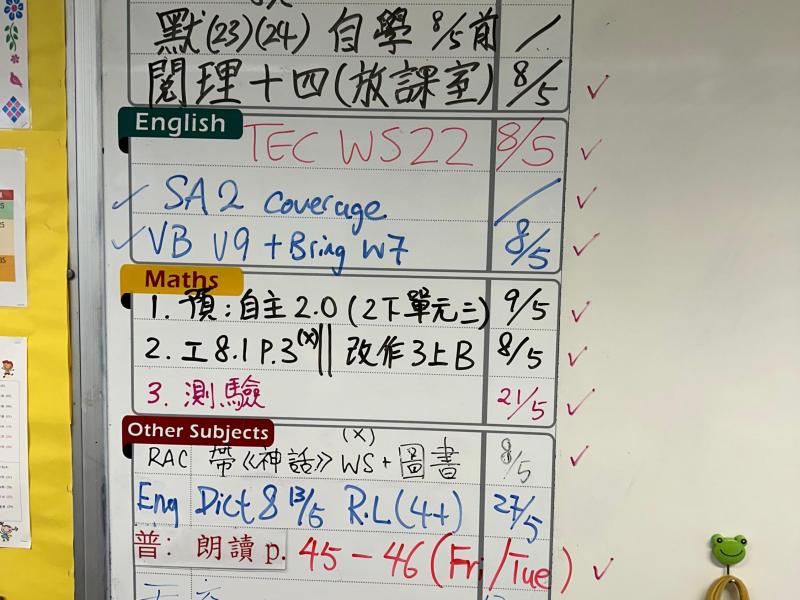 默(23)(24) 自學 8/5前 /
閱理十四(放課室) 8/5 ✓
English
TEC WS22 8/5 ✓
✓ SA2 coverage / ✓
✓ VB V9 + Bring W7 8/5 ✓
Maths
1. 預:自主2.0 (2下單元三) 9/5 ✓
2. 工8.1 P.3(x) || 改作3上B 8/5 ✓
3. 測驗 21/5 ✓
Other Subjects
(x)
RAC 帶《神話》WS+圖書 8/5 ✓
Eng Dict 8 13/5 R.L(4+) 27/5
普: 朗讀 p. 45-46 (Fri/Tue) ✓